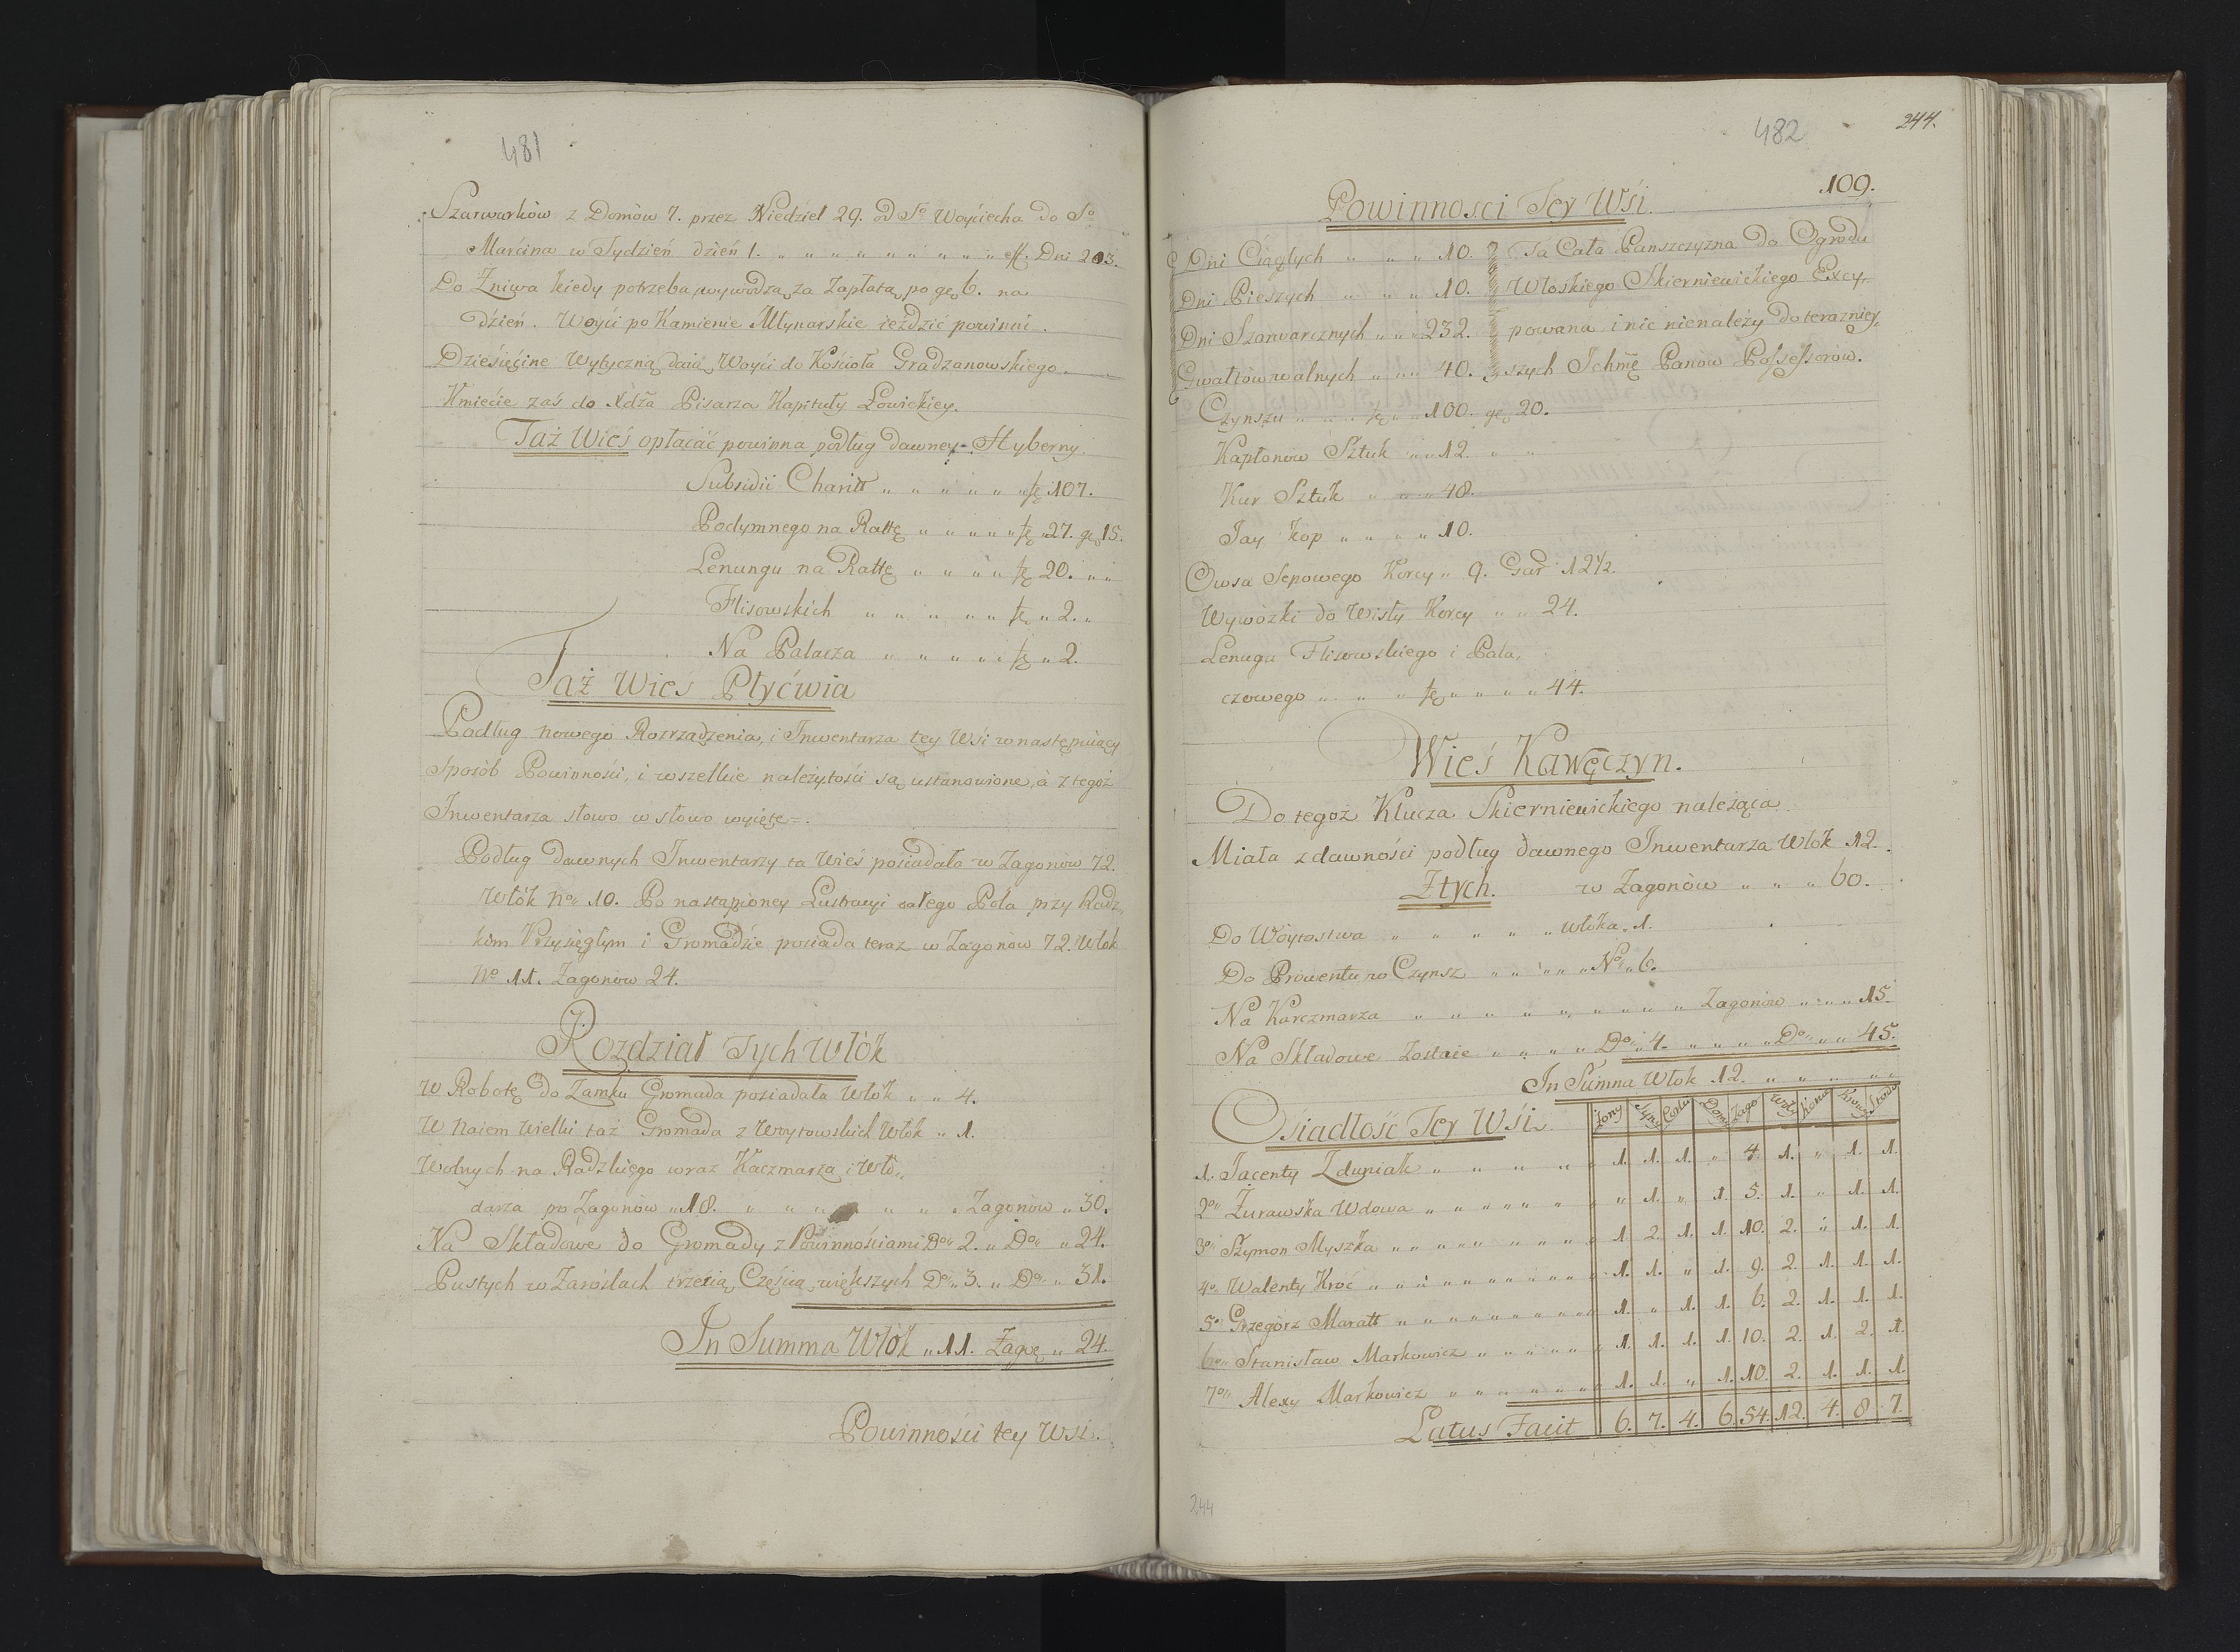 481
Szarwarków z Domów 7. przez Niedziel 29. od S° Woyciecha do S°
Marcina w Tydzień dzień 1. " " " " " " " " " eff. Dni 203.
Do Żniwa kiedy potrzeba, wywodzą za Zapłatą po gę 6. na
dzień. Woyci po Kamienie Młynarskie ieździć powinni.
Dziesięcine Wytyczną daią Woyci do Kościoła Gradzanowskiego.
Kmiecie zaś do Xdza Pisarza Kapituły Łowickiey.
Taż Wieś opłacać powinna podług dawney Hyberny.
Subsidii Charitt " " " " " " fę 107.
Podymnego na Rattę " " " " " fę " 27. gę 15.
Lenungu na Rattę " " " " fę 20. " "
Flisowskich " " " " " fę " 2. "
Na Palacza " " " " " fę " 2.
Taż Wieś Płyćwia
Podług nowego Rozrządzenia, i Inwentarza tey Wsi w następuiący
sposób Powinności, i wszelkie należytości są ustanowione, a z tegoż
Inwentarza słowo w słowo wyięte =.
Podług dawnych Inwentarzy ta Wieś posiadała w Zagonów 72.
Włók N° 10. Po nastąpioney Lustracyi całego Pola przy Radz,
kim Przysięgłym i Gromadzie posiada teraz w Zagonów 72. Włok
N° 11. Zagonów 24.
Rozdział Tych Włók
W Robotę do Zamku Gromada posiadała Włók " " 4.
W Naiem Wielki taż Gromada z Woytowskich Włók " 1.
Wolnych na Radzkiego wraz Kaczmarza i Wło,,
darza po Zagonów " 18. " " " " " " Zagonów " 30.
Na Składowe do Gromady z Powinnościami D° 2. " D° " 24.
Pustych w Zaroślach trzecią Częścią większych D° " 3. " D° " 31.
In Summa Włók " 11. Zagę " 24.
Powinności tey Wsi.
482
244.
109.
Powinnosci Tey Wśi.
Dni Ciągłych " " " 10. Ta Cała Panszczyzna do Ogrodu
Dni Pieszych " " " 10. Włoskiego Skierniewickiego Excy,
Dni Szarwarcznych " " 232. powana i nic nienależy do teraźniey,
Gwałtów walnych " " " 40. szych Ichmę Panów Possessorów.
Czynszu " " " fę " " 100. gę 20.
Kapłonów Sztuk " " 12. " "
Kur Sztuk " " " 48.
Jay kop " " " " 10.
Owsa Sepowego Korcy " 9. Gar 12½.
Wywózki do Wisły Korcy " " 24.
Lenugu Flisowskiego i Pala,
czowego " " " fę " " " " 44.
Wieś Kawęczyn.
Do tegoż Klucza Skierniewickiego należąca
Miała z dawności podług dawnego Inwentarza Włók 12.
Ztych. w Zagonów " " " 60.
Do Wóytostwa " " " " " włóka " 1.
Do Prowentu w Czynsz " " " " " N° " 6.
Na Karczmarza " " " " " " " " " Zagonów " " " 15.
Na Składowe Zostaie " " " " D° " 4. " " " " D° " " 45.
In Summa Włok 12. " " " " "
Osiadłość Tey Wśi. Żony Syny Córki Domy Zago Woły Konie Krowy
1. Jacenty Zduniak " " " " " 1. 1. 1. " 4. 1. " 1. 1.
2° Żurawska Wdowa " " " " " " " 1. " 1. 5. 1. " 1. 1.
3° Szymon Myszka " " " " " " " 1. 2. 1. 1. 10. 2. " 1. 1.
4° Walenty Kroć " " " " " " " " 1. 1. " 1. 9. 2. 1. 1. 1.
5° Grzegorz Maratt " " " " " " " " 1. " 1. 1. 6. 2. 1. 1. 1.
6° Stanisław Markowicz " " " " " 1. 1. 1. 1. 10. 2. 1. 2. 1.
7° Alexy Markowicz " " " " " " 1. 1. " 1. 10. 2. 1. 1. 1.
Latus Facit 6. 7. 4. 6. 54. 12. 4. 8. 7.
244